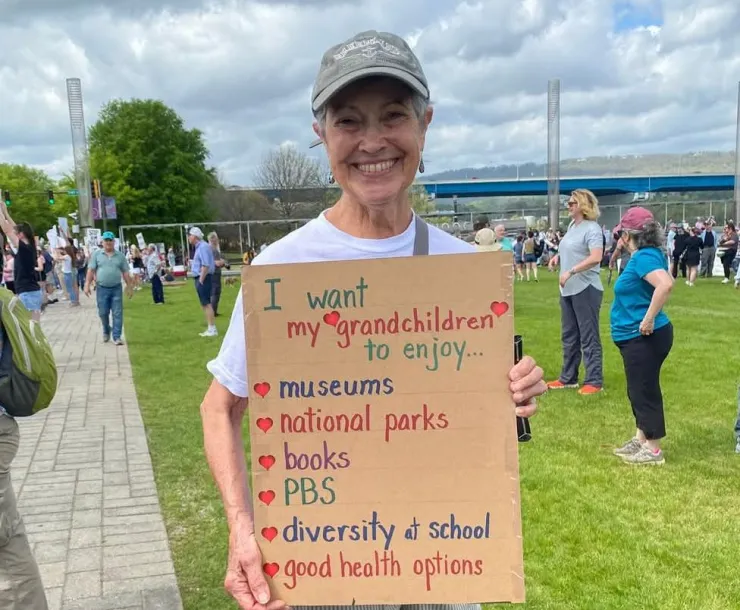 I want
my grandchildren
to enjoy...
museums
national parks
books
PBS
diversity at school
good health options